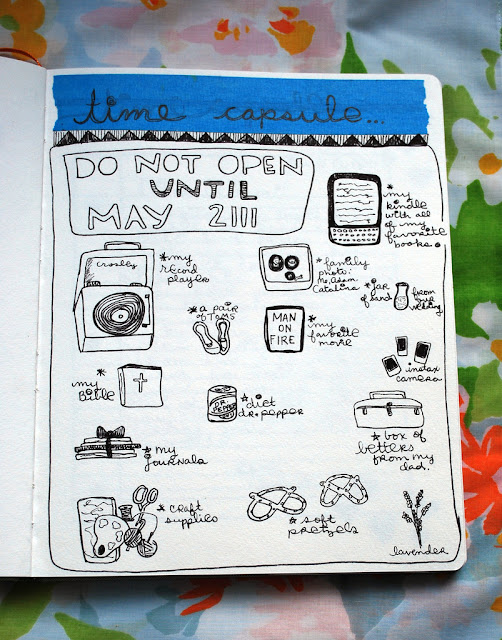 time capsule...
DO NOT OPEN
UNTIL
MAY 2111
*my
kindle
with all
of my
favorite
books.
crosley
*my
record
player
*family
photo:
Catalina
*jar
of sand
from
our
wedding
*a pair
of TOMS
MAN
ON
FIRE
*my
favorite
movie
*instax
camera
*
my
Bible
DR.
PEPPER
*diet
dr. pepper
*box of
letters
from my
dad.
*my
journals
*craft
supplies
*soft
pretzels
lavender